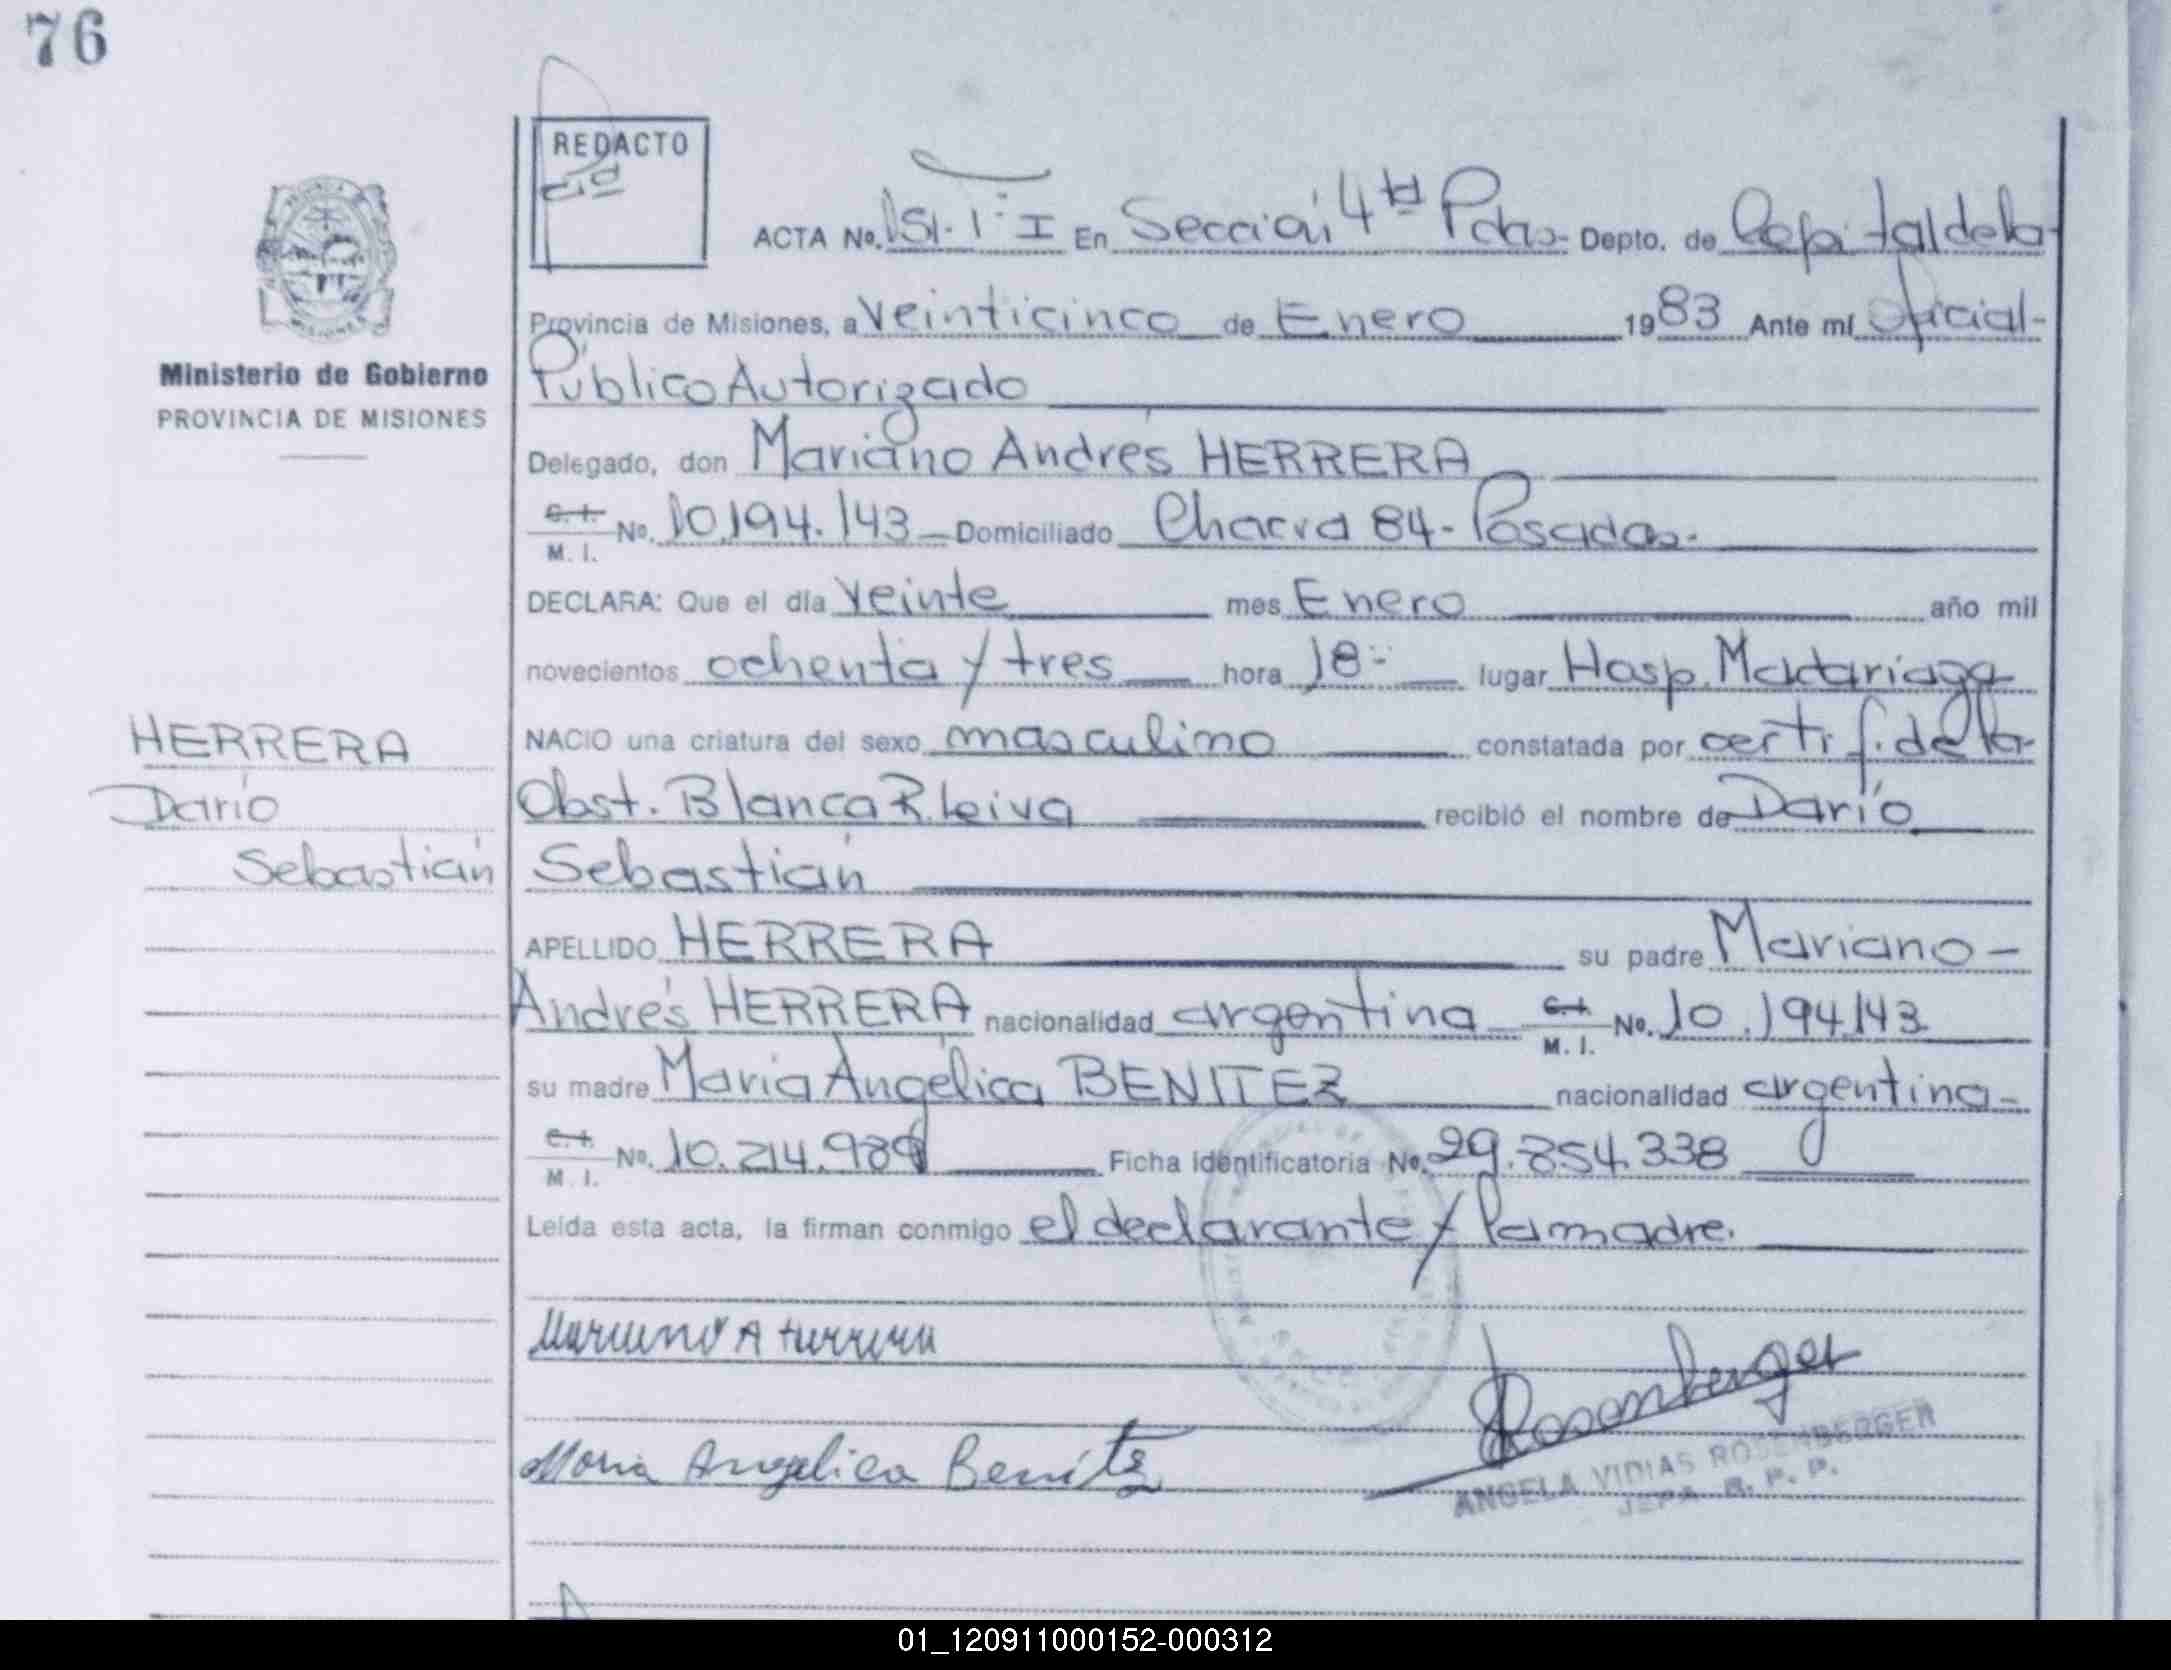 76
REDACTO
ACTA No. 151. T: I En Sección 4ta Pdas- Depto. de Capital de la-
Provincia de Misiones, a veinticinco de Enero 1983 Ante mí Oficial-
Ministerio de Gobierno
PROVINCIA DE MISIONES
Público Autorizado
Delegado, don Mariano Andrés HERRERA
C. I.
M. I.
No. 10.194.143 Domiciliado Chacra 84- Posadas.
DECLARA: Que el día veinte mes Enero año mil
novecientos ochenta y tres hora 18- lugar Hosp. Madariaga
NACIO una criatura del sexo masculino constatada por certif. de la-
Obst. Blanca R. Leiva recibió el nombre de Darío
Sebastián
HERRERA
Darío
Sebastián
APELLIDO HERRERA su padre Mariano-
Andrés HERRERA nacionalidad argentina C. I. M. I. No. 10.194.143
su madre María Angélica BENITEZ nacionalidad argentina-
C. I.
M. I.
No. 10.214.989 Ficha identificatoria No. 29.854.338
Leída esta acta, la firman conmigo el declarante y la madre.
Mariano A Herrera
Rosenberger
Maria Angelica Benítez
ANGELA VIDIAS ROSENBERGER
JEFA R. P. P.
01_120911000152-000312